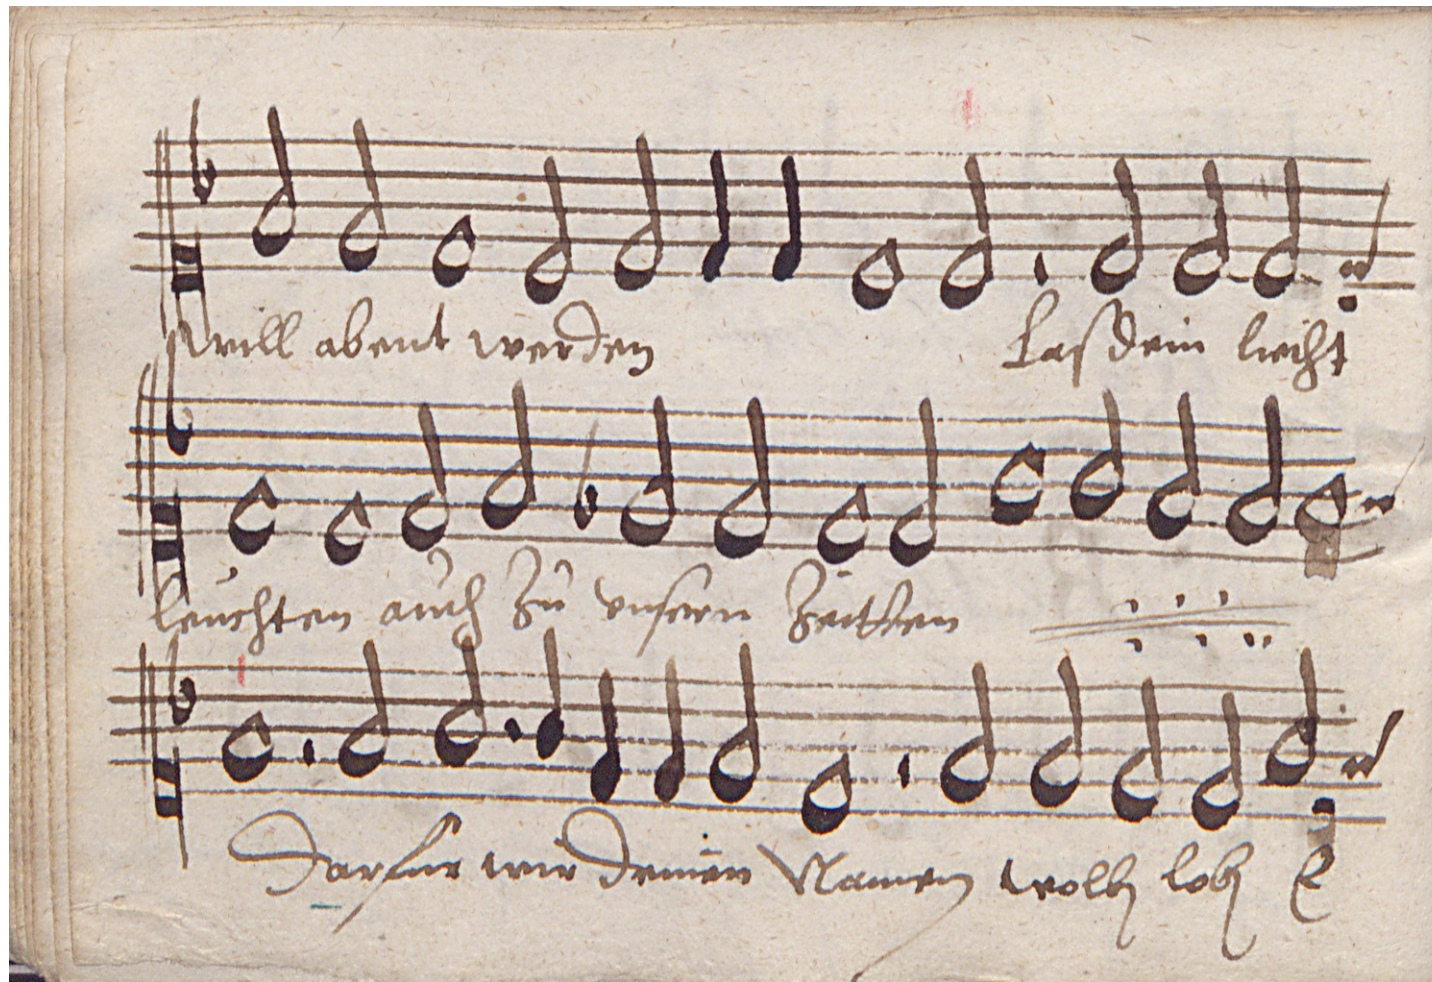 will abent werden Laß dein liecht
leuchten auch zu unsern Zeitten
Darfur wir deinen Namen wolln lobn